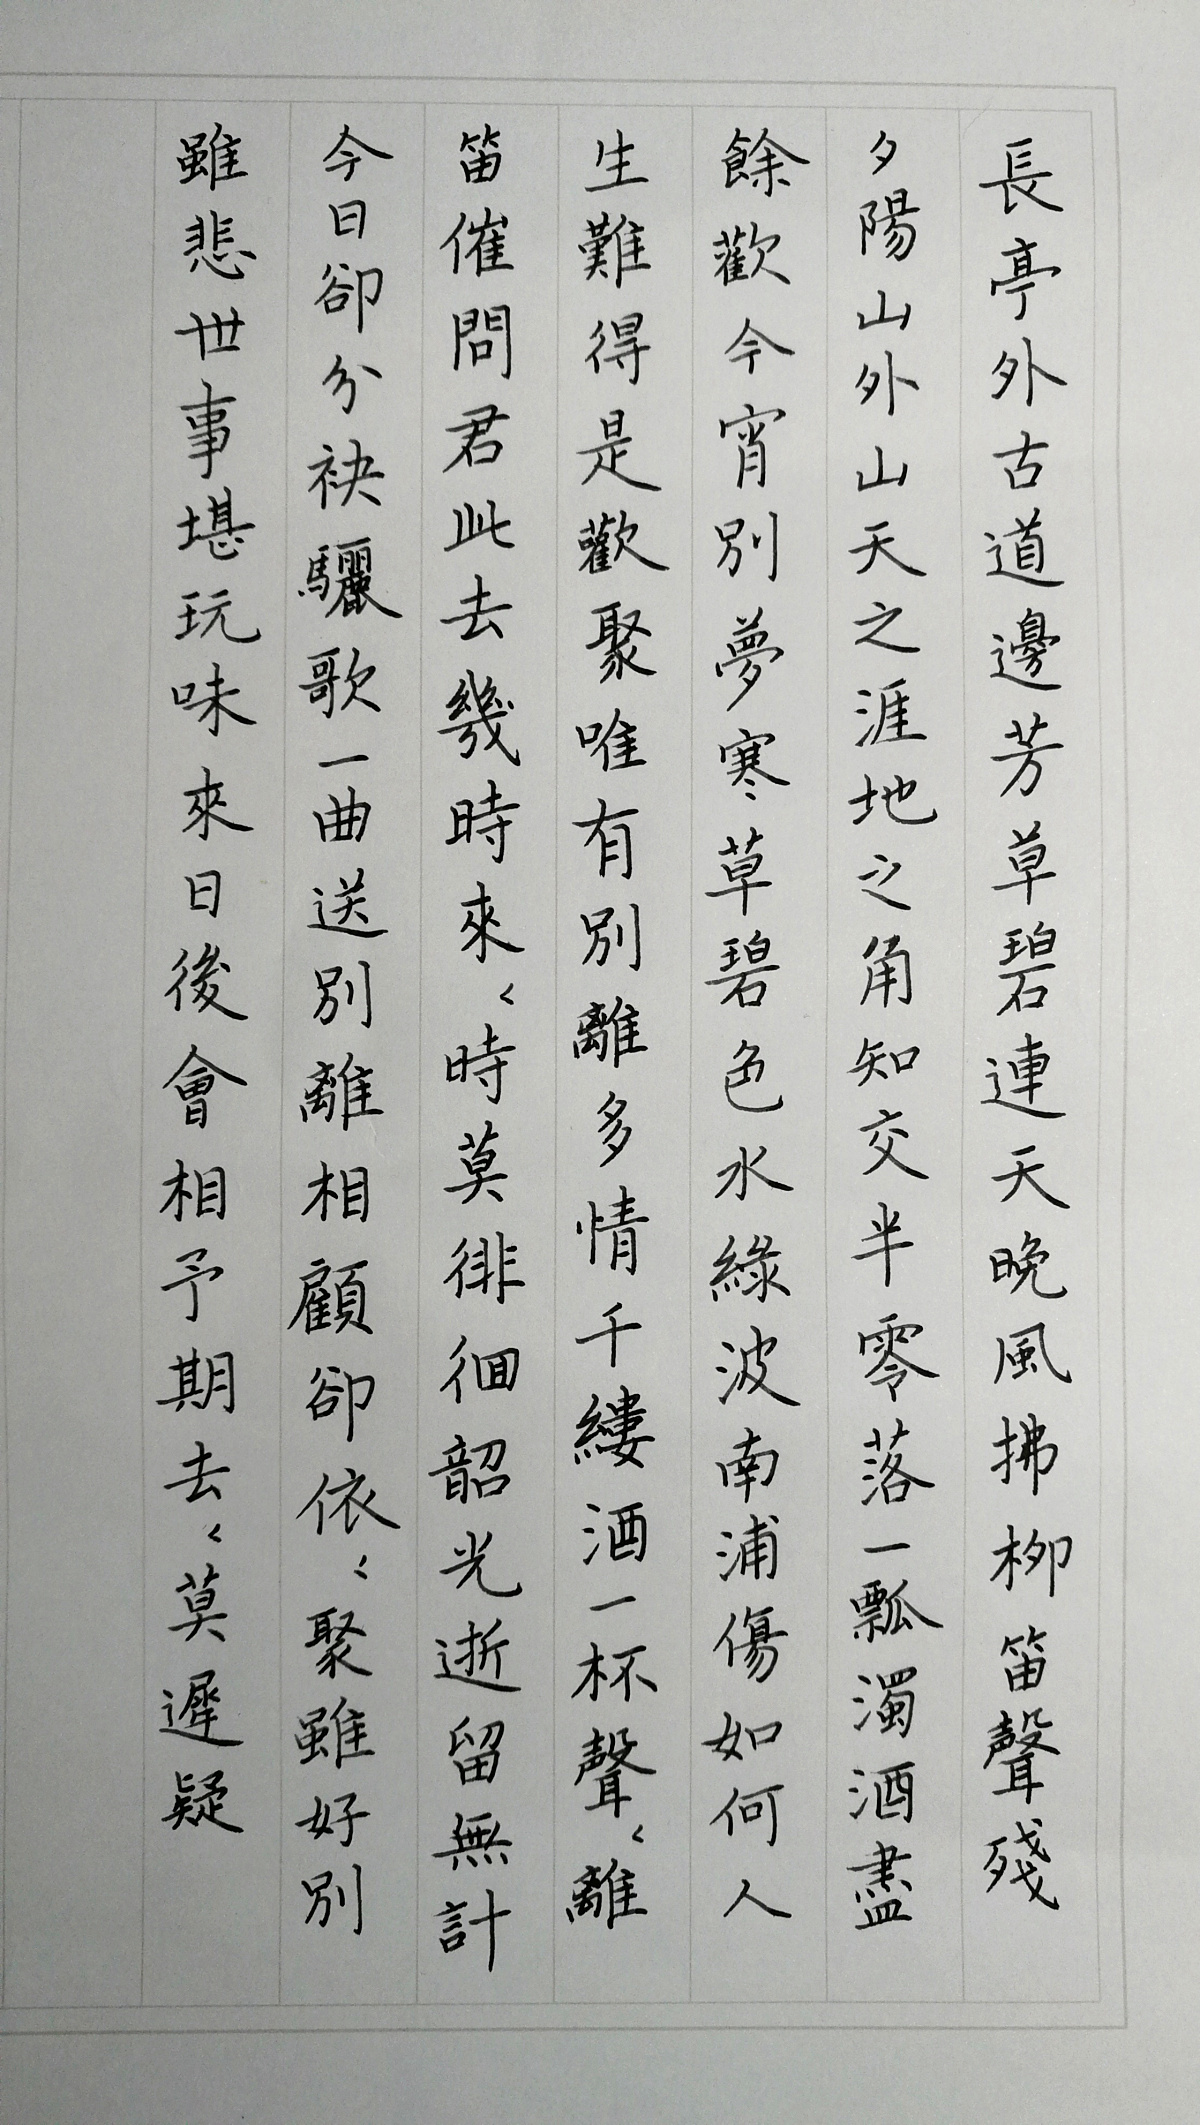 長亭外古道邊芳草碧連天晚風拂柳笛聲殘
夕陽山外山天之涯地之角知交半零落一瓢濁酒盡
餘歡今宵別夢寒草碧色水綠波南浦傷如何人
生難得是歡聚唯有別離多情千縷酒一杯聲〻離
笛催問君此去幾時來〻時莫徘徊韶光逝留無計
今日卻分袂驪歌一曲送別離相顧卻依〻聚雖好別
雖悲世事堪玩味來日後會相予期去〻莫遲疑